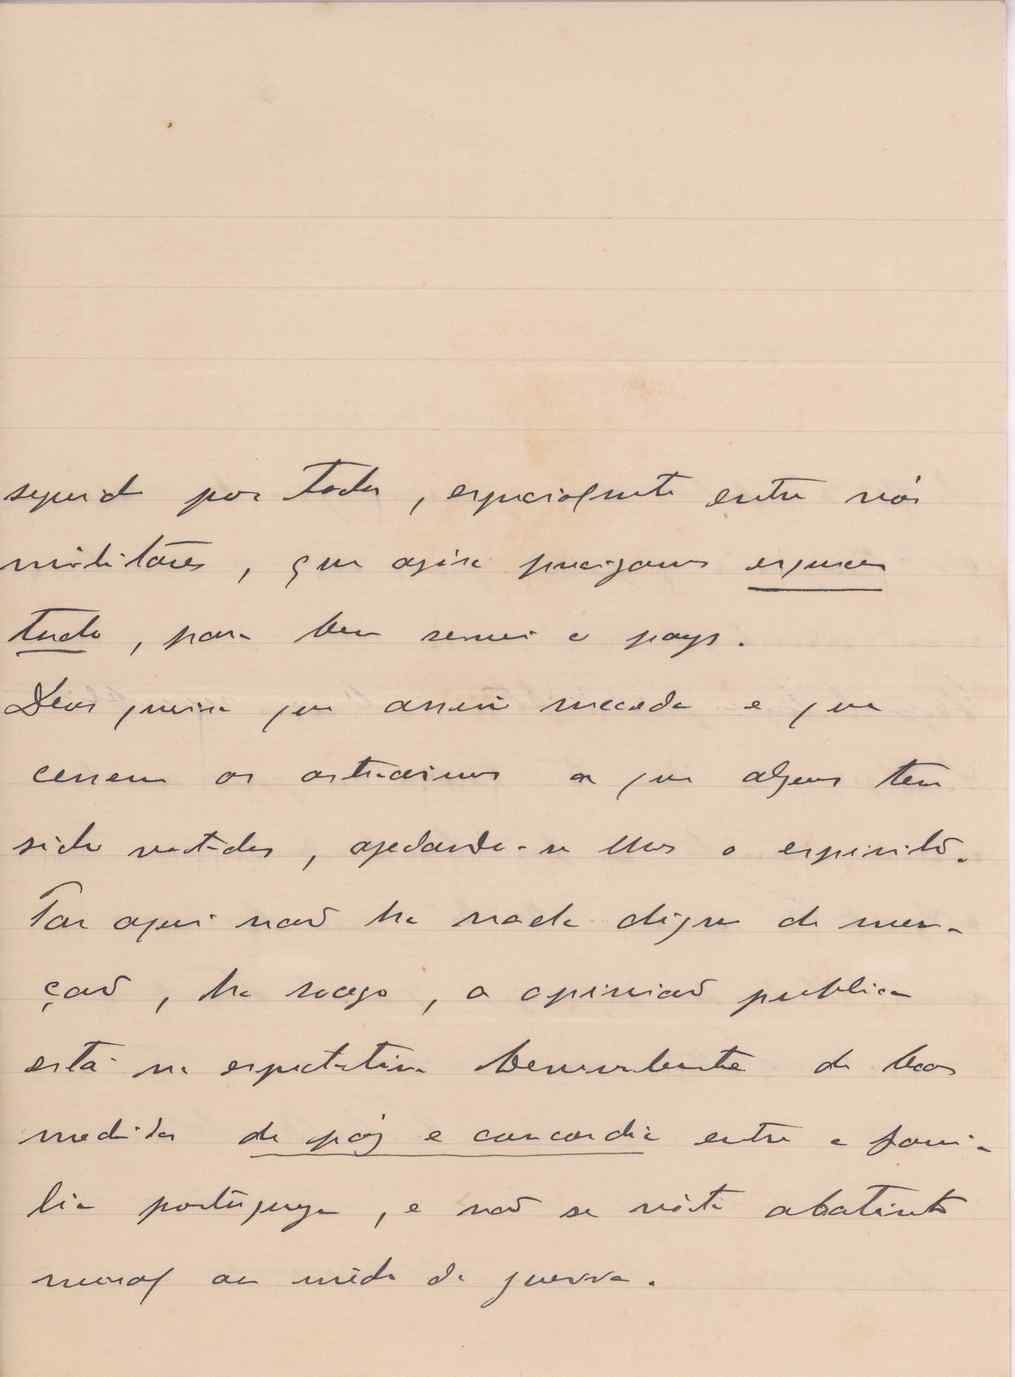 seguido por todos, especialmente entre nós
militares, que agora precizamos esquecer
tudo, para bem servir o pays.
Deus queira que assim succeda e que
cessem os ostracismos a que alguns teem
sido votados, apelando-se lhes o espirito.
Por aqui não ha nada digno de men-
ção, ha socego, a opinião publica
está na espectativa benevolente de boas
medidas de páz e concordia entre a fami-
lia portugueza, e não se nóta abatimento
moral ou mêdo da guerra.